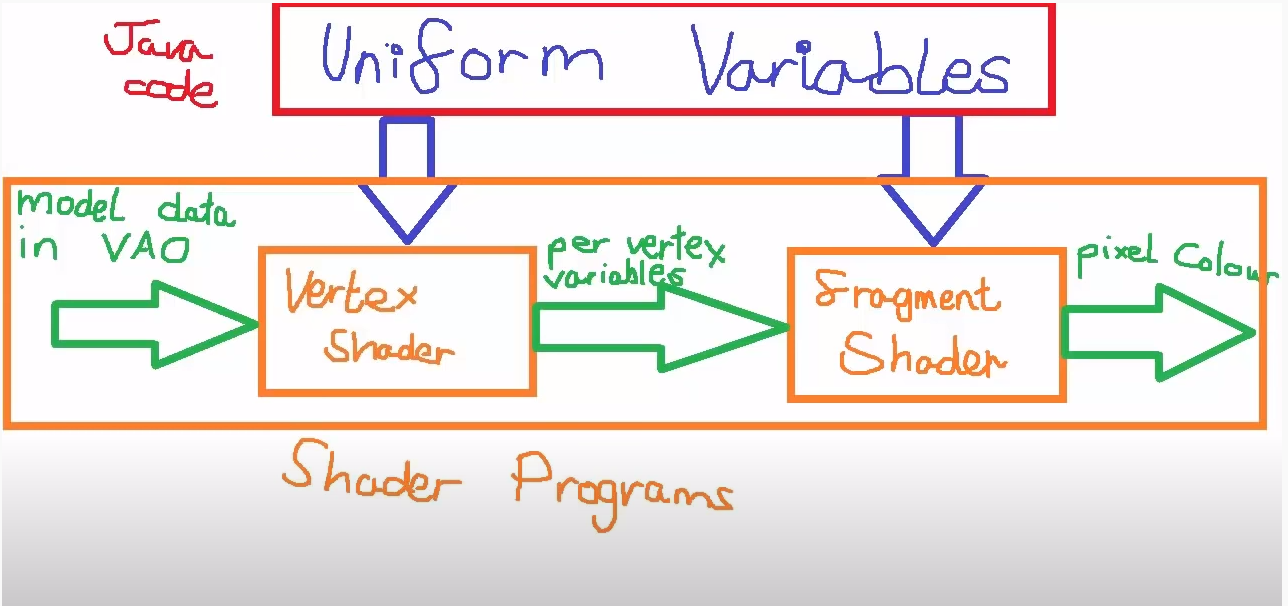 Java
code
Uniform Variables
model data
in VAO
Vertex
Shader
per vertex
variables
Fragment
Shader
pixel Colour
Shader Programs